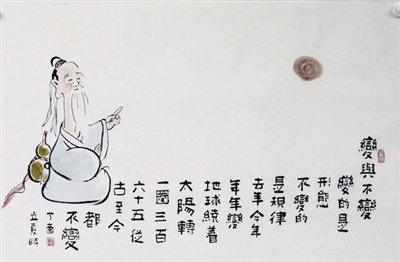 變與不變
變的是
形態
不變的
是規律
去年今年
年年變
地球繞着
太陽轉
一圈三百
六十五從
古至今
都
不變
丁酉
立夏時